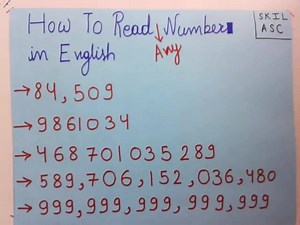 How To Read Number
Any
in English
SKIL
ASC
→84,509
→9861034
→468701035289
→589,706,152,036,480
→999,999,999,999,999